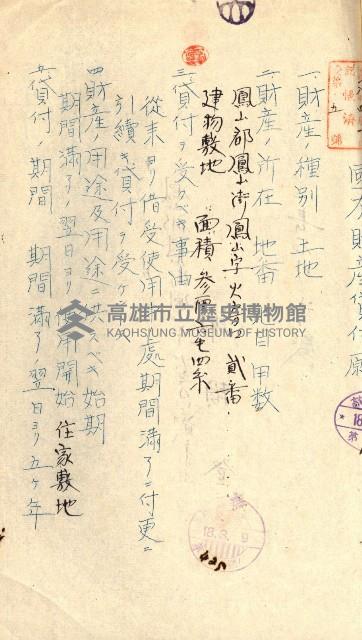 國有財產貸付願
一、財產ノ種別 土地
二、財產ノ所在 地番 目 甲数
鳳山郡鳳山街鳳山字火房口 貳番
建物敷地 面積
三、貸付ヲ受クベキ事由
從来ヨリ借受使用 處期間満了ニ付更ニ
引續キ貸付ヲ受ケ
四、財產ノ用途及用途ニ供スベキ始期
期間満了ノ翌日ヨリ使用開始 住家敷地
五、貸付ノ期間 期間満了ノ翌日ヨリ五ヶ年
高雄市立歷史博物館
KAOHSIUNG MUSEUM OF HISTORY
18.3.9